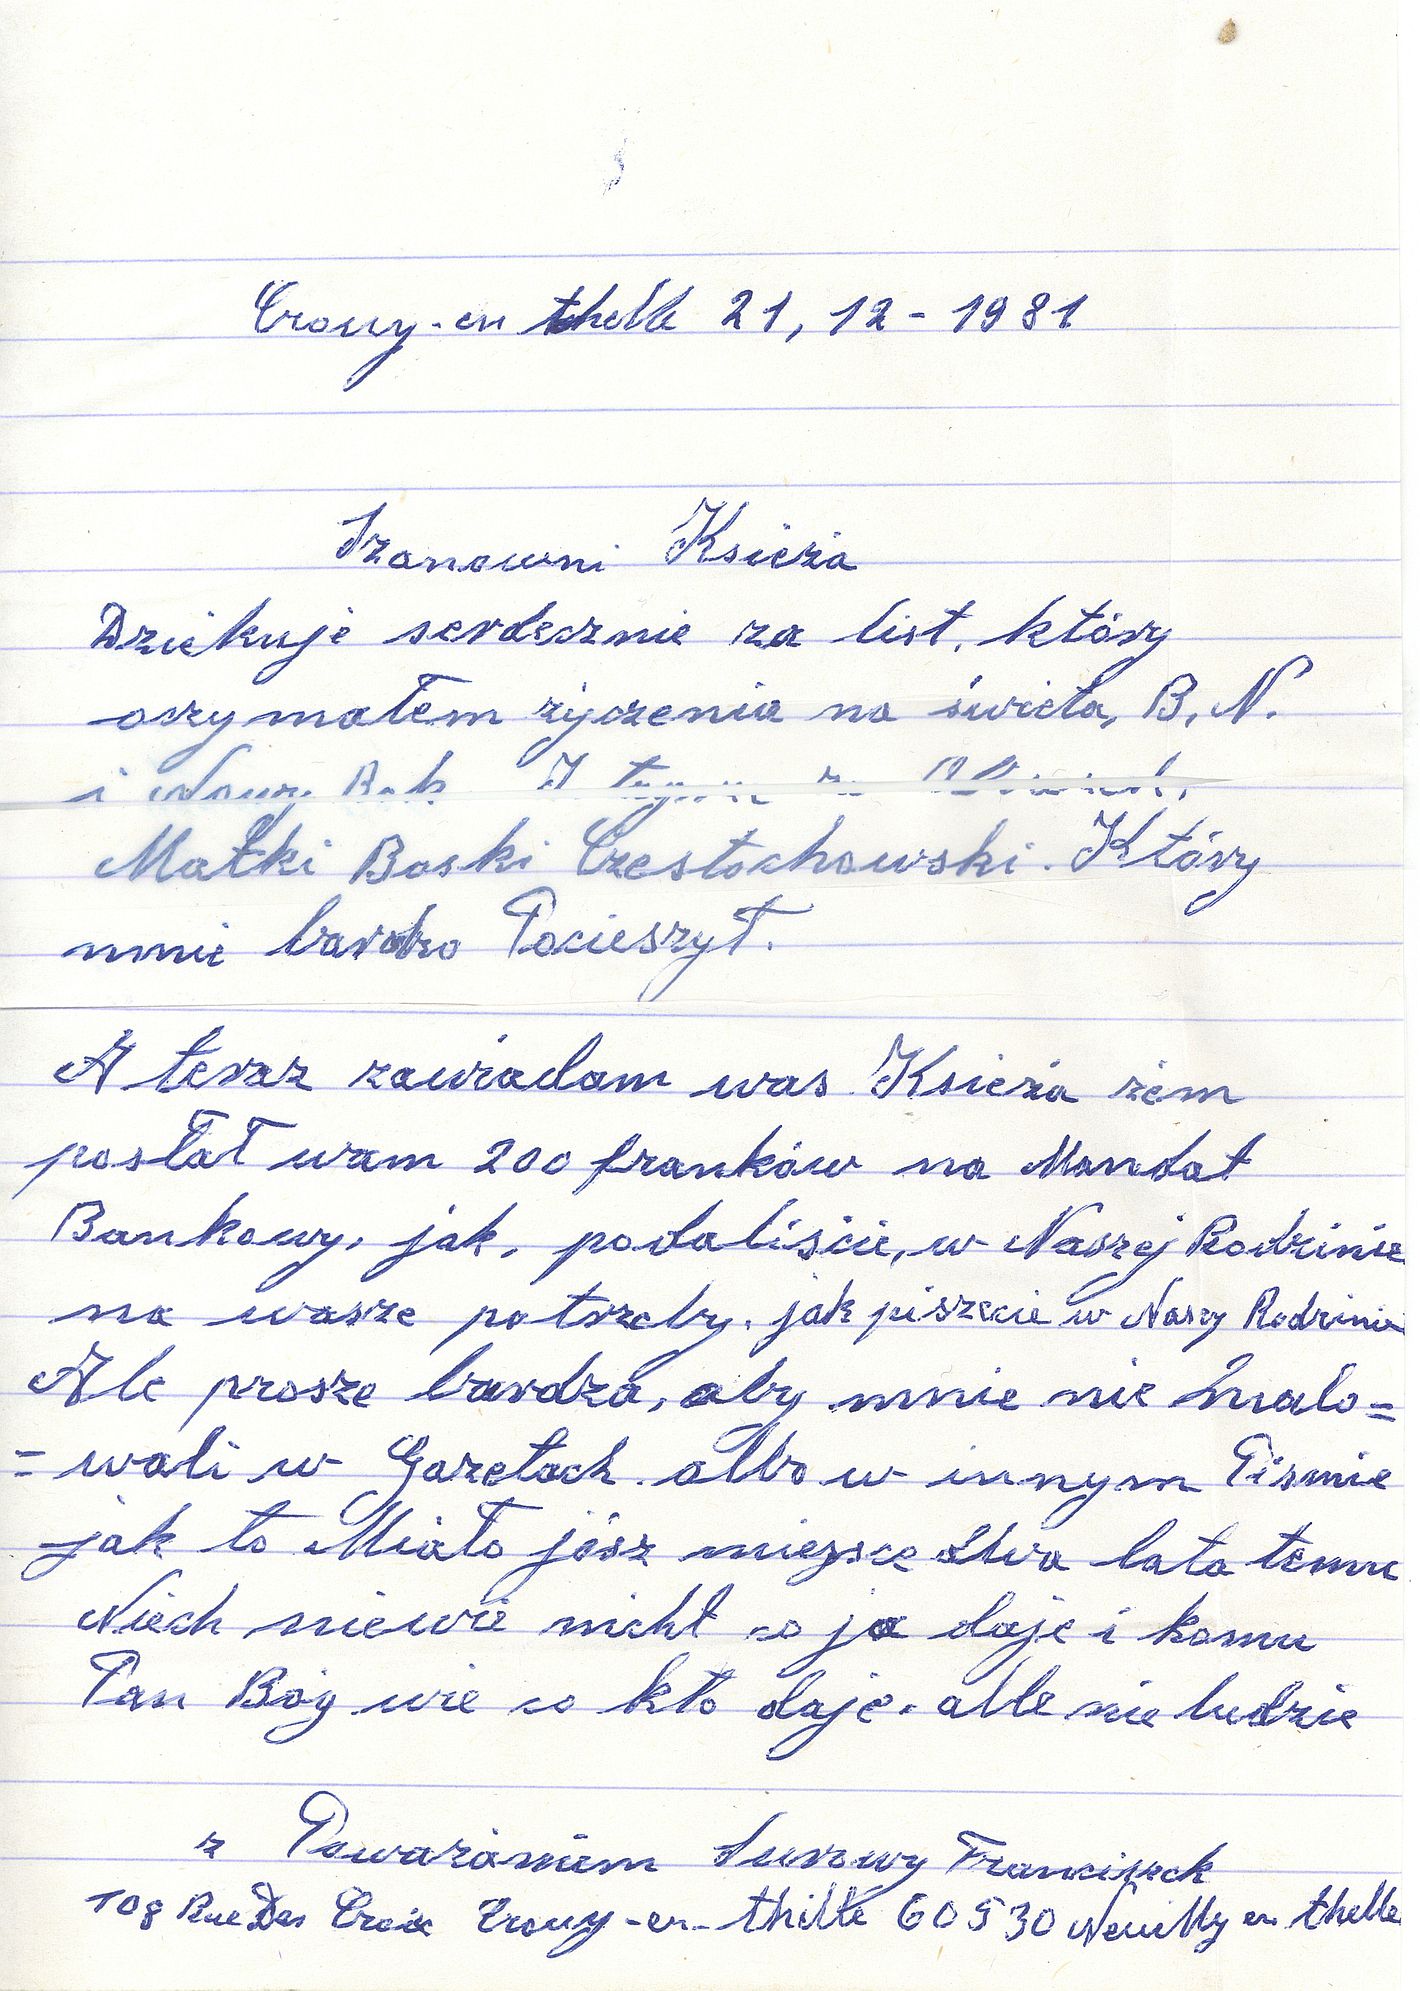 Crouy-en thelle 21, 12 - 1981
Szanowni Ksieża
Dziekuje serdecznie za list, który
oczymałem życzenia na świeta, B, N.
i Nowy Rok I tym za
Matki Boski Czestochowski. Który
mnie bardzo Pocieszył.
A teraz zawiadam was Ksieża żem
posłał wam 200 franków na Mandat
Bankowy, jak, podaliście, w Naszej Rodzinie
na wasze potrzeby. jak piszecie w Naszy Rodzinie
Ale prosze bardza, aby mnie nie malo=
= wali w Gazetach albo w innym Pismie
jak to Miało jósz miejsce dwa lata temu
Niech niewie nicht co ja daje i komu
Pan Bóg wie co kto daje. alle nie ludzie
z Poważaniem Surowy Franciszek
108 Rue Des Croix Crouy-en-thelle 60530 Neuilly en thelle